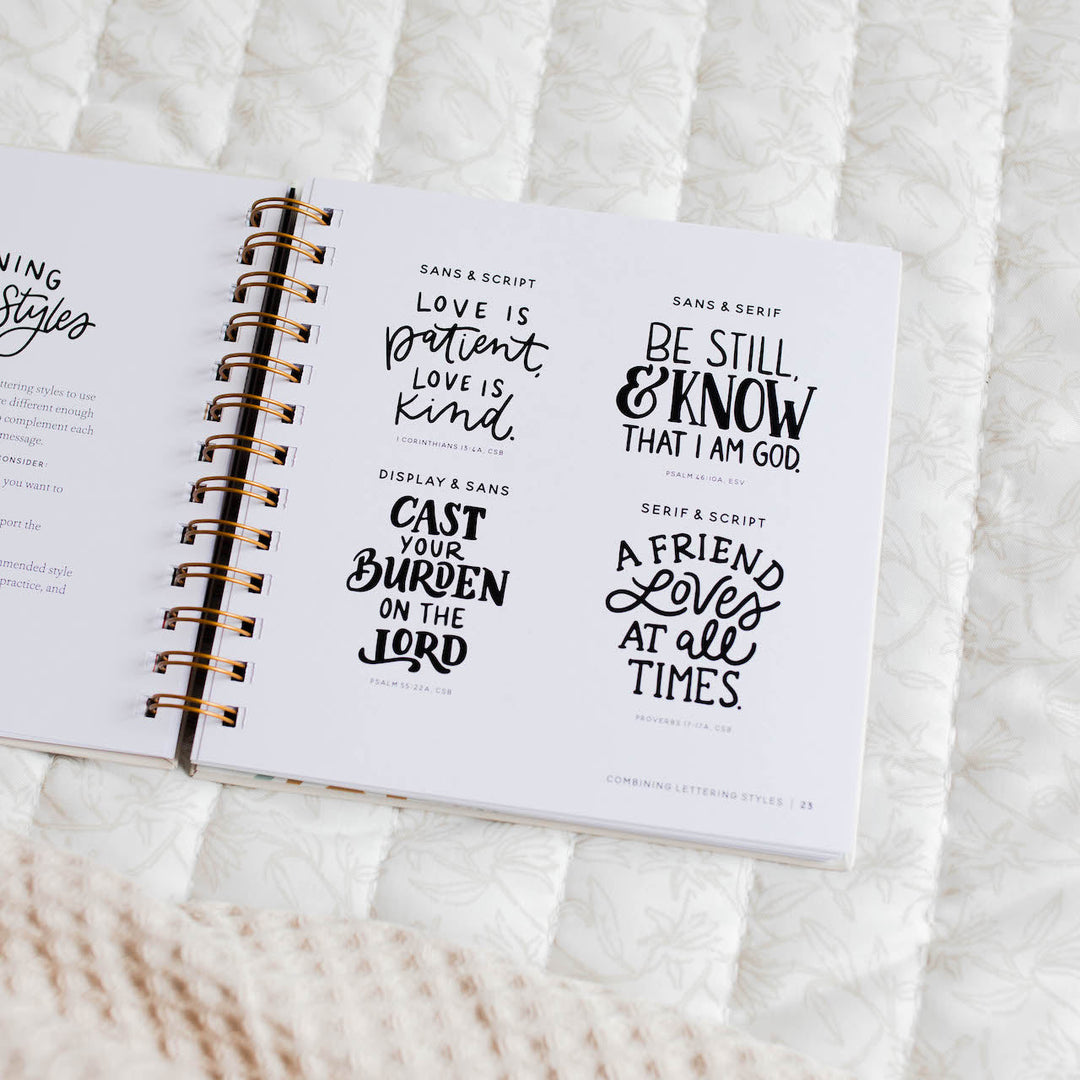 NING
Styles
ttering styles to use
re different enough
complement each
message.
CONSIDER:
you want to
port the
mmended style
practice, and
SANS & SCRIPT
LOVE IS
patient,
LOVE IS
kind.
1 CORINTHIANS 13:4A, CSB
SANS & SERIF
BE STILL,
& KNOW
THAT I AM GOD.
PSALM 46:10A, ESV
DISPLAY & SANS
CAST
YOUR
BURDEN
ON THE
LORD
PSALM 55:22A, CSB
SERIF & SCRIPT
A FRIEND
Loves
AT all
TIMES.
PROVERBS 17:17A, CSB
COMBINING LETTERING STYLES | 23